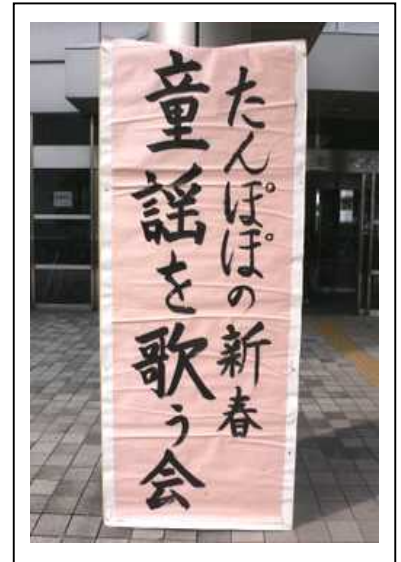 たんぽぽの新春
童謡を歌う会